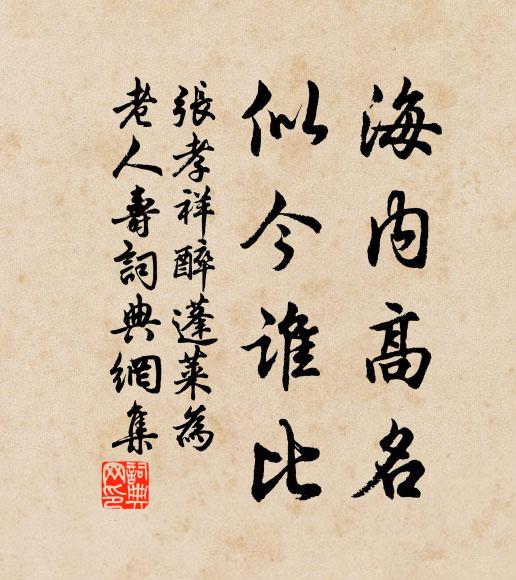 海内高名
似今谁比
張孝祥醉蓬莱為
老人壽詞典網集
詞典
网印